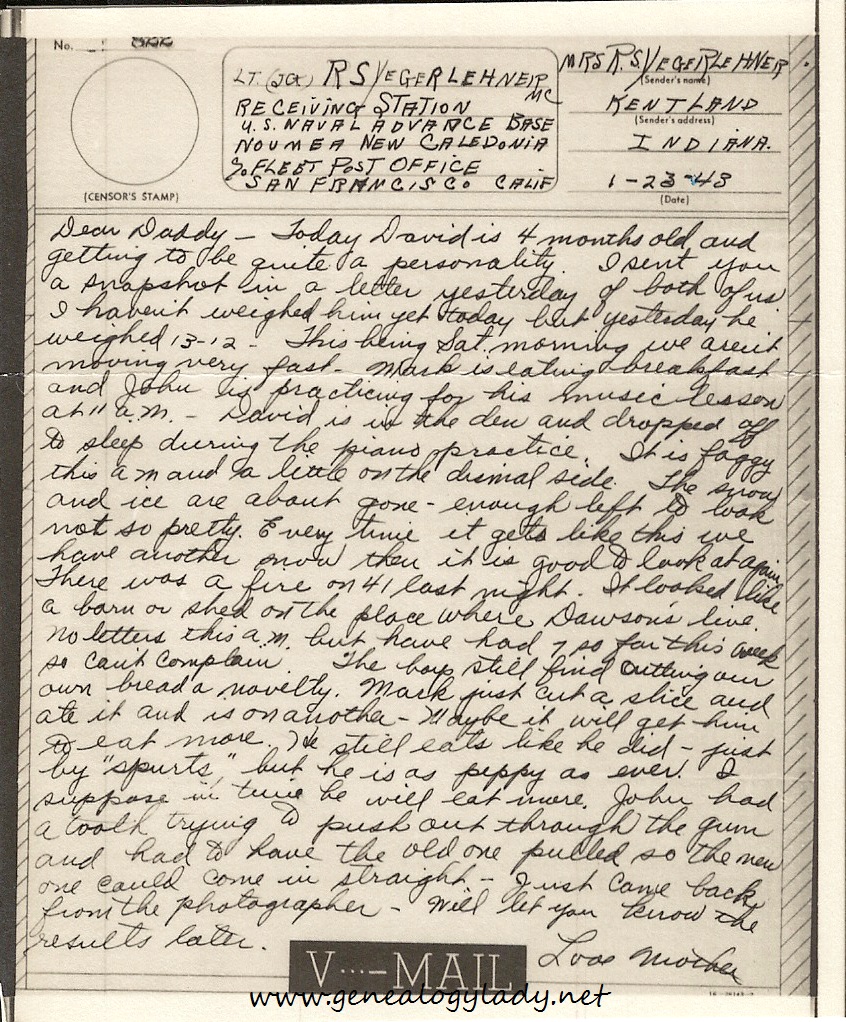 No.
LT. (JG) R S YEGERLEHNER
MC
RECEIVING STATION
U.S. NAVAL ADVANCE BASE
NOUMEA NEW CALEDONIA
% FLEET POST OFFICE
SAN FRANCISCO CALIF
(CENSOR'S STAMP)
MRS R.S. YEGERLEHNER
(Sender's name)
KENTLAND
(Sender's address)
INDIANA.
1-23-43
(Date)
Dear Daddy – Today David is 4 months old and
getting to be quite a personality. I sent you
a snapshot in a letter yesterday of both of us
I haven't weighed him yet today but yesterday he
weighed 13-12 – This being Sat. morning we aren't
moving very fast – Mark is eating breakfast
and John is practicing for his music lesson
at 11 a.m. – David is in the den and dropped off
to sleep during the piano practice. It is foggy
this a m and a little on the dismal side. The snow
and ice are about gone – enough left to look
not so pretty. Every time it gets like this we
have another snow then it is good to look at again.
There was a fire on 41 last night. It looked like
a barn or shed on the place where Dawson's live.
No letters this a.m. but have had 7 so far this week
so can't complain. The boys still find cutting our
own bread a novelty. Mark just cut a slice and
ate it and is on another – Maybe it will get him
to eat more. He still eats like he did – just
by "spurts," but he is as peppy as ever. I
suppose in time he will eat more. John had
a tooth trying to push out through the gum
and had to have the old one pulled so the new
one could come in straight – Just came back
from the photographer – Will let you know the
results later.
Love Mother
V···–MAIL
www.genealogylady.net